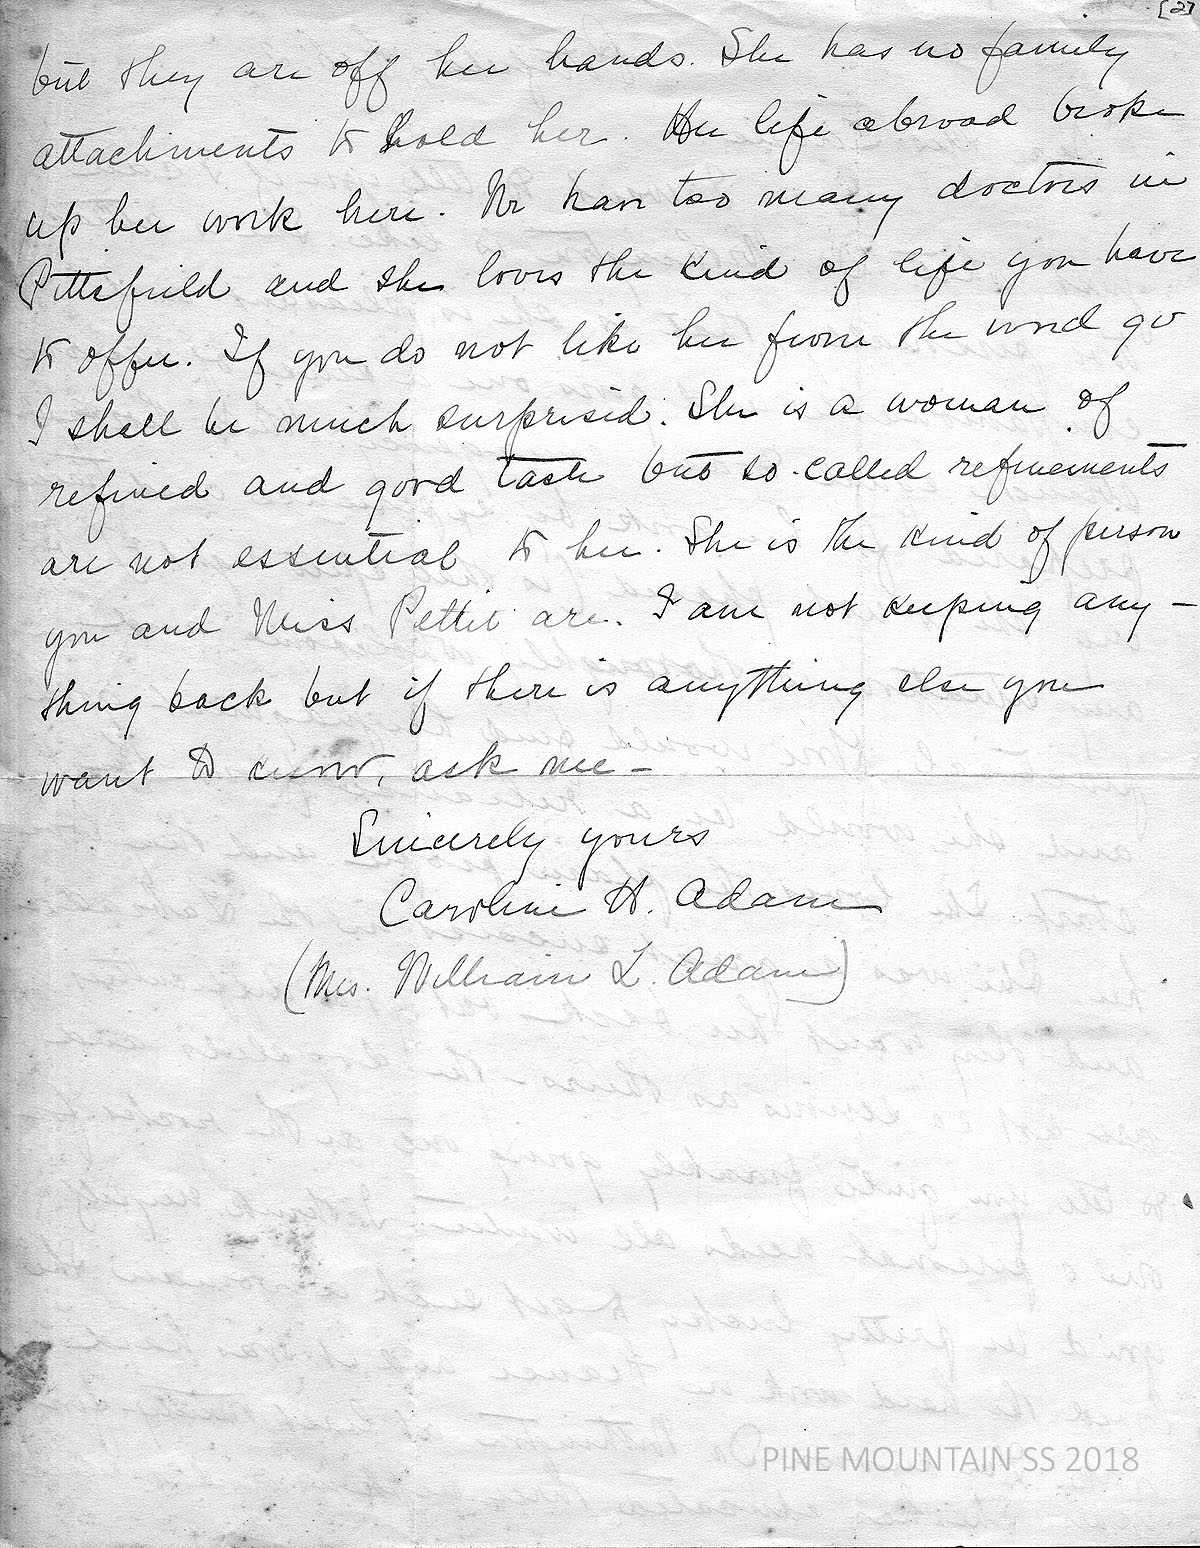 [2]
but they are off her hands. She has no family
attachments to hold her. Her life abroad broke
up her work here. We have too many doctors in
Pittsfield and she loves the kind of life you have
to offer. If you do not like her from the word go
I shall be much surprised. She is a woman of
refined and good taste but so-called refinements
are not essential to her. She is the kind of person
you and Miss Pettit are. I am not keeping any-
thing back but if there is anything else you
want to know, ask me -
Sincerely yours
Caroline H. Adam
(Mrs. William L. Adam)
PINE MOUNTAIN SS 2018